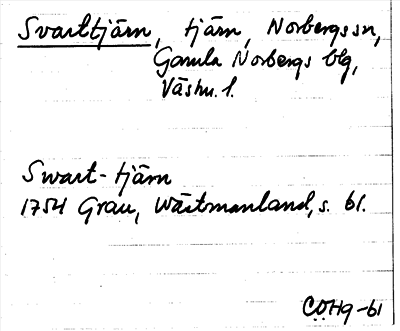 Svarttjärn, tjärn, Norbergs sn,
Gamla Norbergs blg,
Västm. l.
Swart-tjärn
1754 Grau, Wästmanland, s. 61.
CÖHg-61